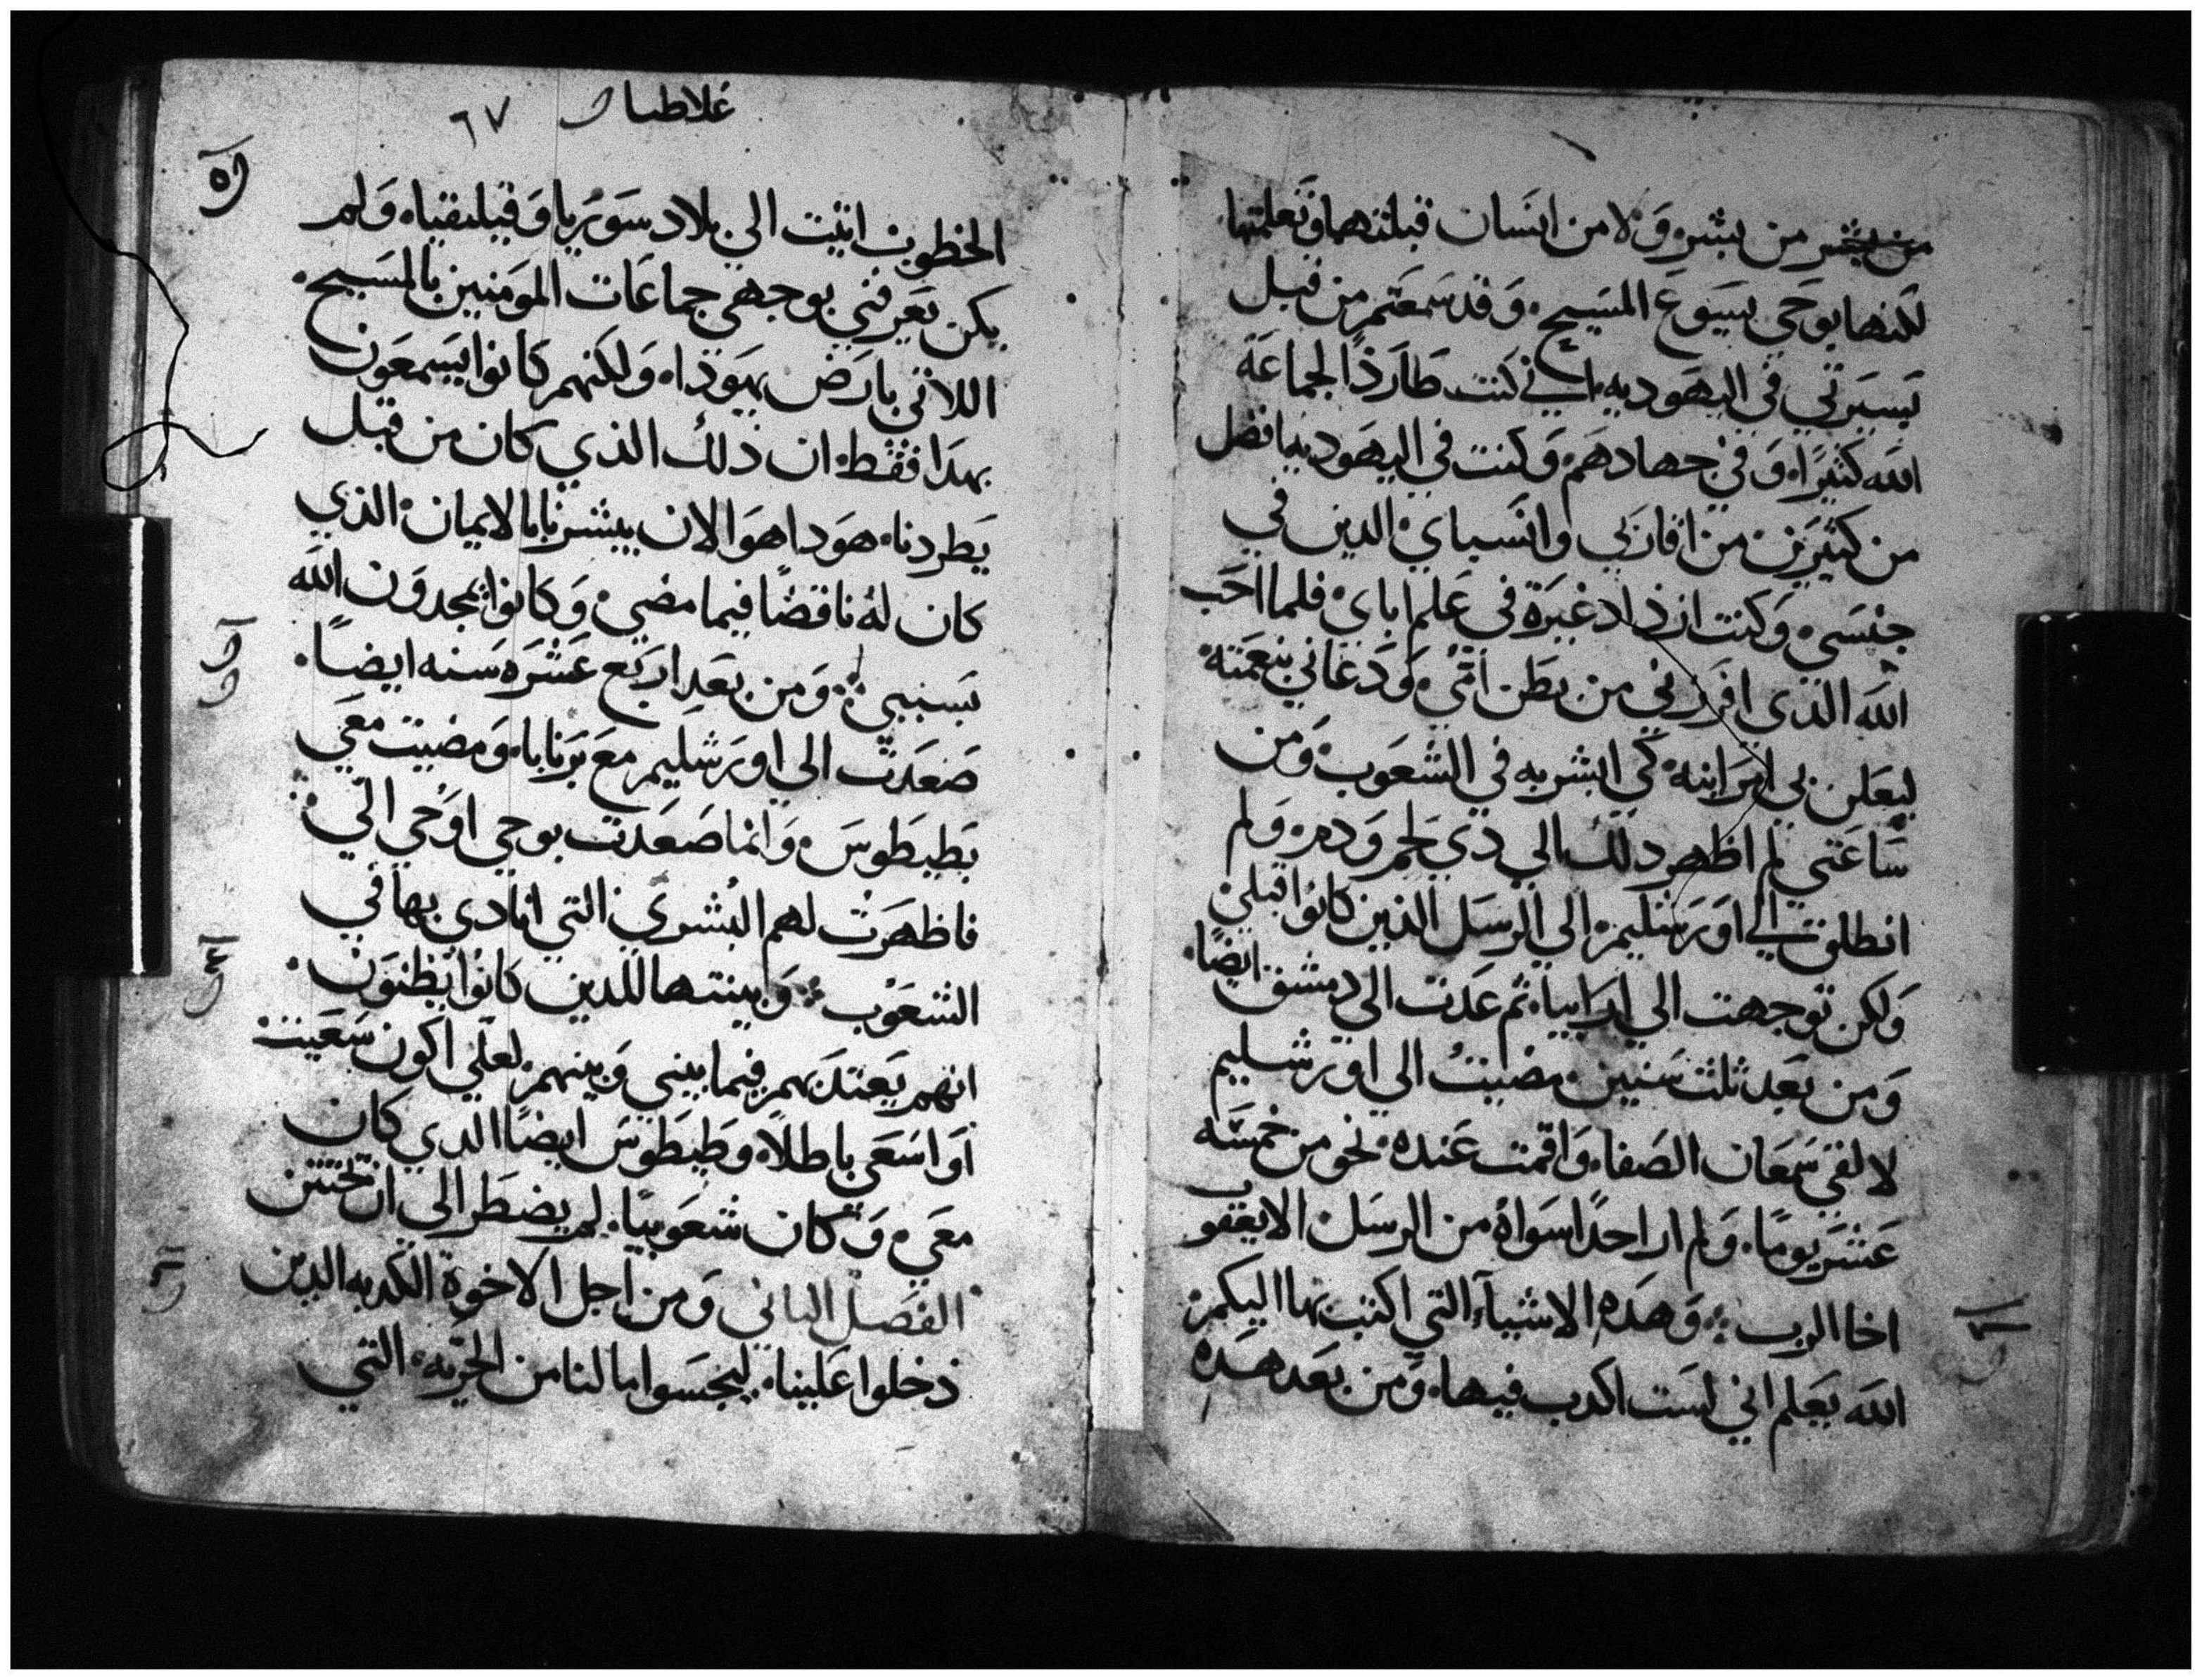 من بشر من بشر ولا من انسان قبلتها وتعلمتها
لكنها بوحي يسوع المسيح وقد سمعتم من قبل
بسيرتي في اليهوديه انني كنت طاردًا لجماعة
الله كثيرًا وفي جهادهم وكنت في اليهوديه افضل
من كثيرين من اقاربي وانسباي الدين في
جنسي وكنت ازداد غيرة في علم اباي فلما احب
الله الذي افرزني من بطن امي ودعاني بنعمته
ليعلن بي امر ابنه كي ابشر به في الشعوب ومن
ساعتي لم اظهر دلك الي دي لحم ودم ولم
انطلق الي اورشليم الي الرسل الذين كانوا قبلي
ولكن توجهت الي ارابيا ثم عدت الى دمشق ايضًا
ومن بعد ثلث سنين مضيت الي اورشليم
لالقي سمعان الصفا واقمت عنده نحو من خمسه
عشر يومًا ولم ار احدًا سواه من الرسل الا يعقوب
اخا الرب وهده الاشياء التي اكتب بها اليكم
الله يعلم اني لست اكدب فيها ومن بعد هده
غلاطيا ٦٧
الخطوب اتيت الي بلاد سوريا وقيليقيا ولم
يكن يعرفني بوجهي جماعات المومنين بالمسيح
اللاتي بارض يهودا ولكنهم كانوا يسمعون
بهدا فقط ان ذلك الذي كان من قبل
يطردنا هودا هو الان يبشرنا بالايمان الذي
كان له ناقضًا فيما مضي وكانوا يمجدون الله
بسببي ومن بعد اربع عشره سنه ايضًا
صعدت الي اورشليم مع برنابا ومضيت معي
بطيطوس وانما صعدت بوحي اوحي الي
فاظهرت لهم البشري التي انادي بها في
الشعوب وبينتها للدين كانوا يظنون
انهم يعتد بهم فيما بيني وبينهم لعلي اكون سعيت
او اسعي باطلًا وطيطوس ايضًا الدي كان
معي وكان شعوبيًا لم يضطر الي ان يختتن
الفصل الثاني ومن اجل الاخوة الكدبه الدين
دخلوا علينا ليجسوا ما لنا من الحريه التي